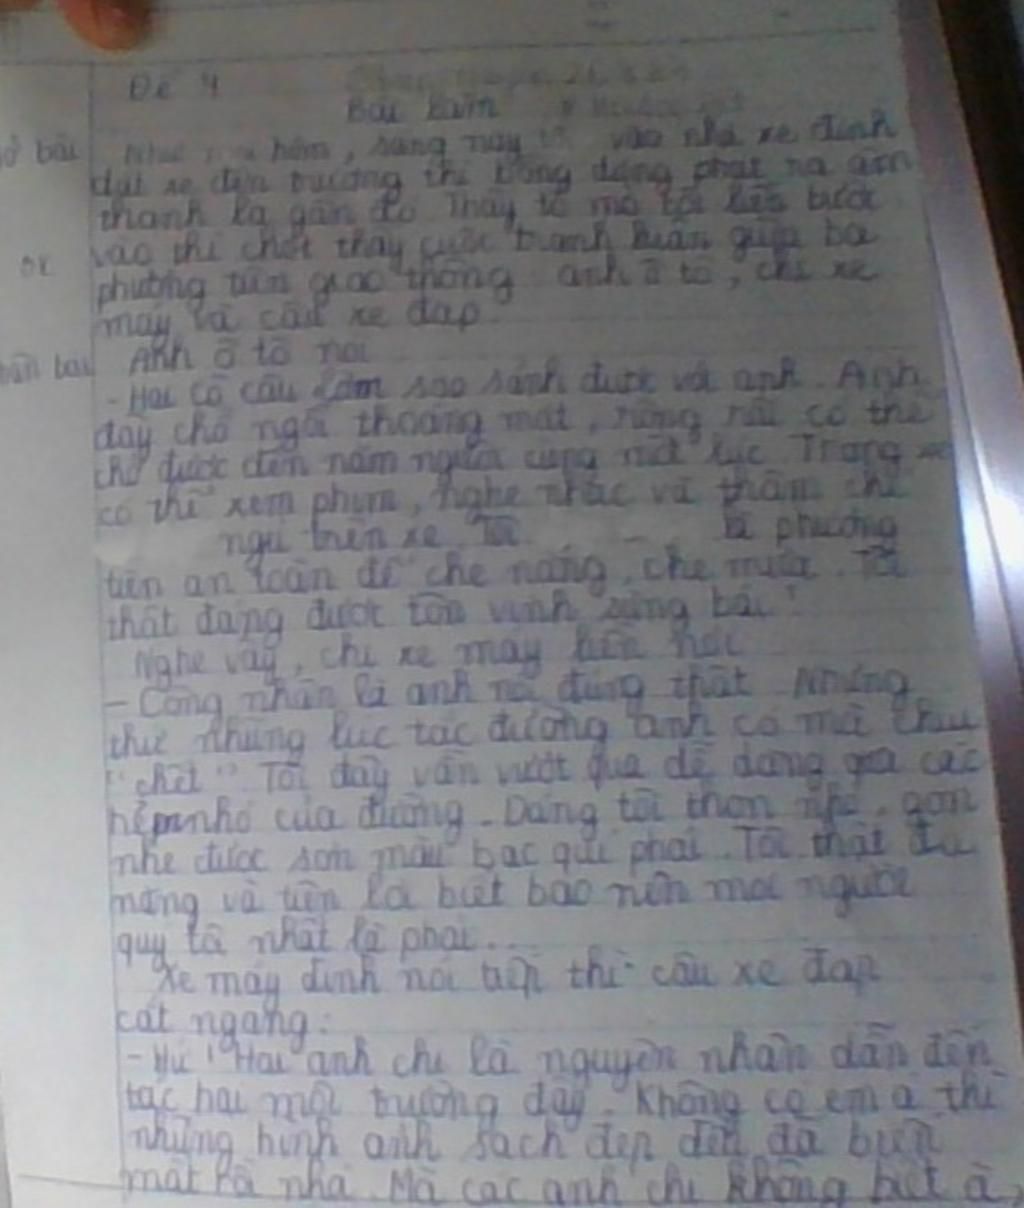 Đề 4
Bài làm
ở bài Như mọi hôm, sáng nay vào nhà xe định
dắt xe đến trường thì bỗng dưng phát ra âm
thanh lạ gần đó. Thấy tò mò tôi liền bước
vào thì chợt thấy cuộc tranh luận giữa ba
phương tiện giao thông anh ô tô, chị xe
máy và cậu xe đạp
thân bài Anh ô tô nói
- Hai cô cậu làm sao sánh được với anh. Anh
đây chỗ ngồi thoáng mát, rộng rãi có thể
chở được đến năm người cùng một lúc. Trong xe
có thể xem phim, nghe nhạc và thậm chí
ngủ trên xe. Tôi là phương
tiện an toàn để che nắng, che mưa. Tôi
thật đáng được tôn vinh sùng bái!
Nghe vậy, chị xe máy liền nói
- Công nhận là anh nói đúng thật. Nhưng
thử những lúc tắc đường anh có mà chịu
"chết". Tôi đây vẫn vượt qua dễ dàng qua các
nhỏ của đường. Dáng tôi thon nhỏ, gọn
nhẹ được sơn màu bạc quí phái. Tôi thật đa
năng và tiện lợi biết bao nên mọi người
quý tôi nhất là phải...
Xe máy định nói tiếp thì cậu xe đạp
cắt ngang:
- Hừ! Hai anh chị là nguyên nhân dẫn đến
tác hại môi trường đấy. Không có em ạ thì
những hình ảnh sạch đẹp đến đã biến
mất rồi nha. Mà các anh chị không biết à,